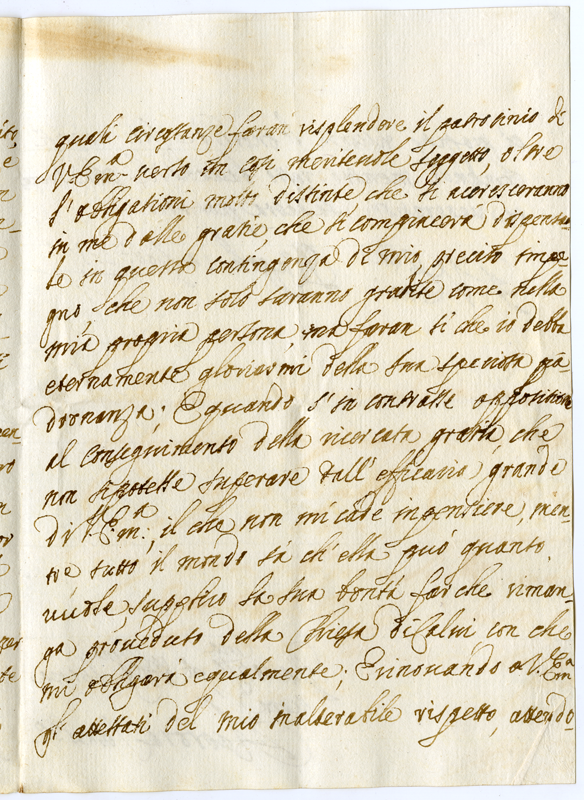 quali circostanze faran risplendere il patrocinio di
V. Em.a verso un così meritevole soggetto, oltre
l'obligationi molto distinte che si acresceranno
in me dalle gratie, che si compiacerà dispensar
le in questa contingenza di mio preciso impe-
gno, che non solo saranno gradite come nella
mia propria persona, ma faran sì che io debba
eternamente gloriarmi della sua speciosa pa
dronanza; E quando s'incontrasse oppositione
al conseguimento della ricercata gratia, che
non si potesse superare dall'efficacia grande
di V. Em.a, il che non mi cade in pensiere, men-
tre tutto il mondo sà ch'ella può quanto
vuole, supplico la sua bontà far che riman-
ga proveduto della Chiesa di Calvi con che
mi obligarà egualmente; E rinovando a V. Em.a
gl'attestati del mio inalterabile rispetto, attendo-